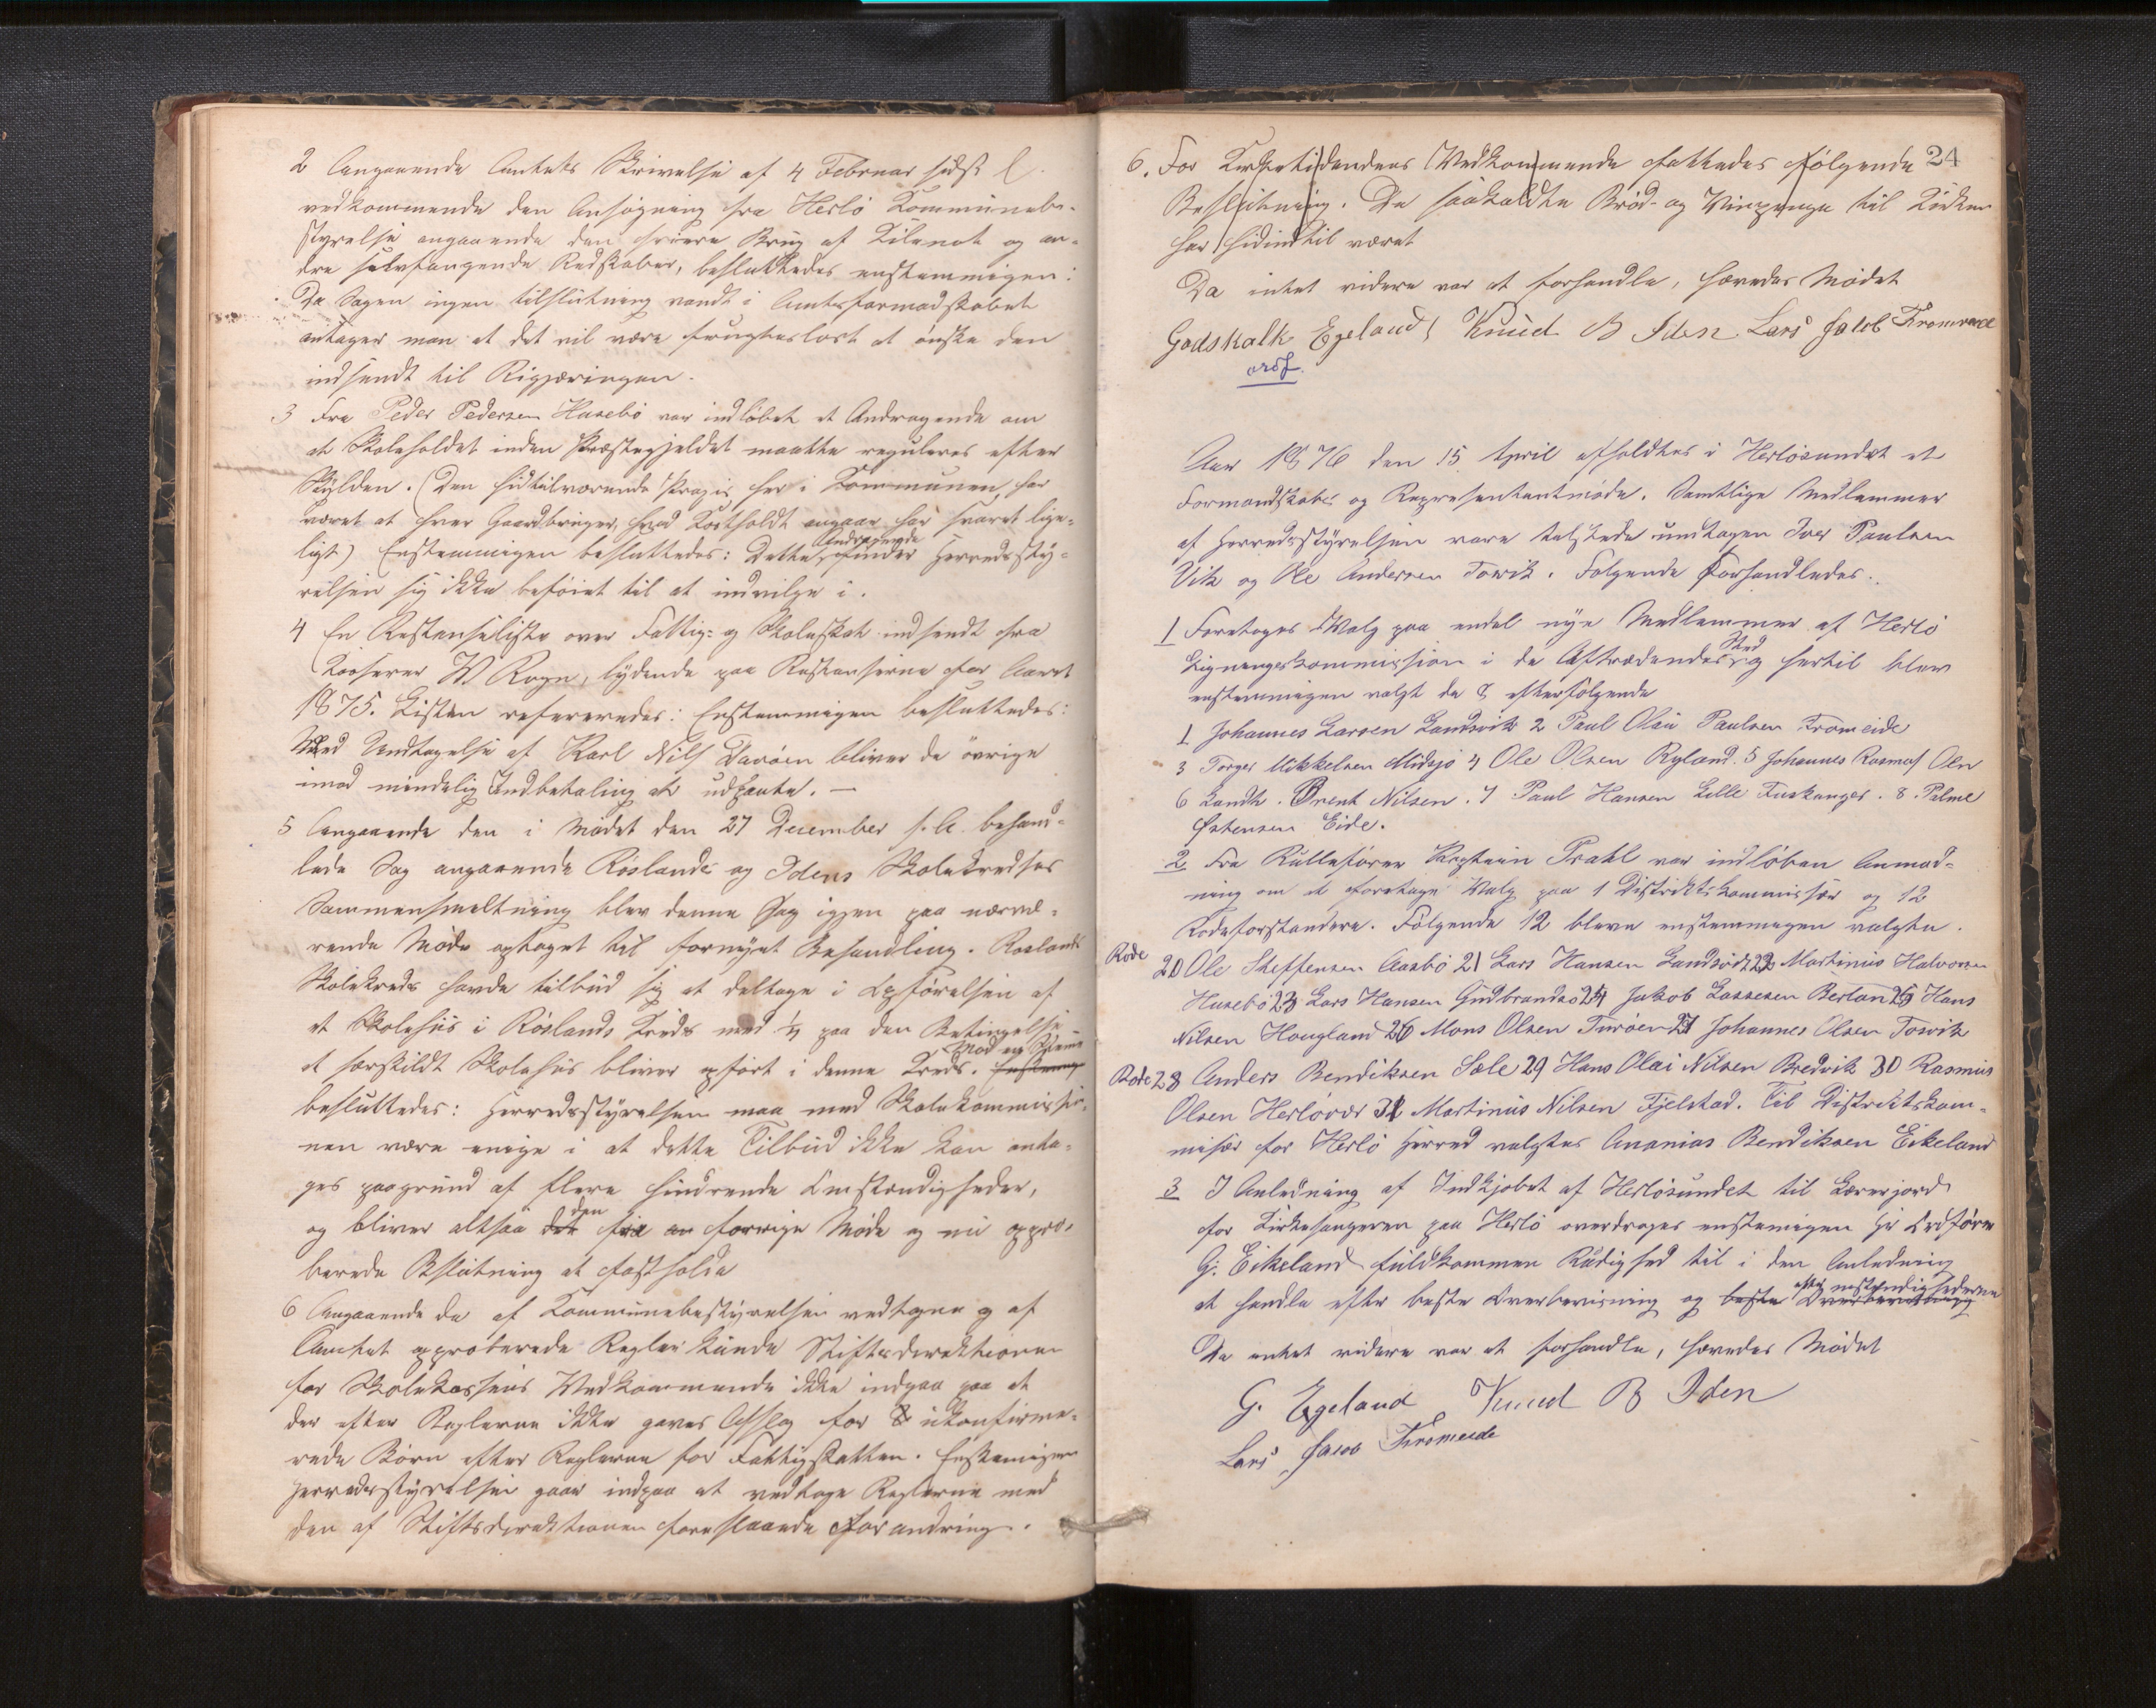 2 Angaaende Amtets Skrivelse af 4 Februar sidst l.
vedkommende den Ansøgning fra Herlö Kommunebe-
styrelse angaaende den friere Brug af Kilenot og an-
dre selvfangende Redskaber, besluttedes enstemmigen:
Da Sagen ingen tilslutning vandt i Amtsformandskabet
antager man at det vil være frugtesløst at ønske den
indsendt til Rigjæringen.
3 Fra Peder Pedersen Husebö var indløbet et Andragende om
at Skoleholdet inden Præstegjeldet maatte reguleres efter
Skylden. (Den hidtilværende Praxis her i Kommunen, har
været at hver Gaardbruger, hvad Kostholdt angaar har svaret lige-
ligt) Enstemmigen besluttedes: Dette Andragende finder Herredssty-
relsen sig ikke beføiet til at indvilge i.
4 En Restanseliste over Fattig- og Skoleskat indsendt fra
Kasserer W Rogn, lydende paa Restanserne for Aaret
1875. Listen refereredes: Enstemmigen besluttedes:
Med Undtagelse af Karl Nils Davöen bliver de övrige
imod mindelig Indbetaling at udpante. —
5 Angaaende den i Mödet den 27 December f. A. behand-
lede Sag angaaende Röslands og Idens Skolekredses
Sammensmeltning blev denne Sag igjen paa nærvæ-
rende Möde optaget til fornyet Behandling. Roslands
Skolekreds havde tilbud sig at deltage i Opförelsen af
et Skolehus i Röslands Kreds med ¼ paa den Betingelse
at særskildt Skolehus bliver opfört i denne Kreds. Mod en Stemme
besluttedes: Herredsstyrelsen maa med Skolekommissio-
nen være enige i at dette Tilbud ikke kan anta-
ges paagrund af flere hindrende Omstændigheder,
og bliver altsaa den fra forrige Möde og nu appro-
berede Beslutning at fastholde
6 Angaaende de af Kommunebestyrelsen vedtagne og af
Amtet approberede Regler kunde Stiftsdirektionen
for Skolekassens Vedkommende ikke indgaa paa at
der efter Reglerne ikke gaves Afslag for 8 ukonfirme-
rede Börn efter Reglerne for Fattigskatten. Enstemmigen
Herredsstyrelsen gaar indpaa at vedtage Reglerne med
den af Stiftsdirektionen foreslaaede Forandring.
24
6. For Kirketidendens Vedkommende fattedes følgende
Beslutning. De saakaldte Bröd- og Vinpenge til Kirken
har hidindtil været
Da intet videre var at forhandle, hævedes Mödet
Godskalk Egeland Knud B Iden Lars Jakob Fromreide
ordf.
Aar 1876 den 15 April afholdtes i Herlösundet et
Formandskabs og Representantmöde. Samtlige Medlemmer
af Herredsstyrelsen vare tilstede undtagen Iver Paulsen
Vik og Ole Andersen Towik. Følgende Forhandledes.
1 Foretoges Valg paa endel nye Medlemmer af Herlö
Ligningskommission i de Aftrædendes Sted og hertil blev
enstemmigen valgt de 8 efterfølgende
1 Johannes Larsen Landsvik 2 Paul Olai Paulsen Fromreide
3 Torger Mikkelsen Midsjö 4 Ole Olsen Ryland. 5 Johannes Rasmus Oln
6 Landh. Brent Nilsen. 7 Paul Hansen Lille Fuskanger. 8. Palme
Østensen Eide.
2 Fra Rullefører Kaptein Prahl var indløben Anmod-
ning om at foretage Valg paa 1 Distriktskommissær og 12
Rodeforstandere. Følgende 12 bleve enstemmigen valgte.
Rode 20 Ole Steffensen Aasbö 21 Lars Hansen Landsvik 22 Martinius Halvorsen
Husebö 23 Lars Hansen Gudbrandsö 24 Jakob Lassesen Berland 25 Hans
Nilsen Hougland 26 Mons Olsen Turöen 27 Johannes Olsen Towik
Rode 28 Anders Bendiksen Sæle 29 Hans Olai Nilsen Bredvik 30 Rasmus
Olsen Herlövær 31 Martinus Nilsen Fjelstad. Til Distriktskom-
misær for Herlö Herred valgtes Ananias Bendiksen Eikeland
3 I Anledning af Indkjøbet af Herlösundet til Lærerjord
for Kirkesangeren paa Herlö overdroges enstemmigen Hr Ordfører
G. Eikeland fuldkommen Rådighed til i den Anledning
at handle efter beste Overbevisning og beste Overbevisning efter omstændighederne
Da intet videre var at forhandle, hævedes Mödet
G. Egeland Knud B Iden
Lars Jacob Fromreide